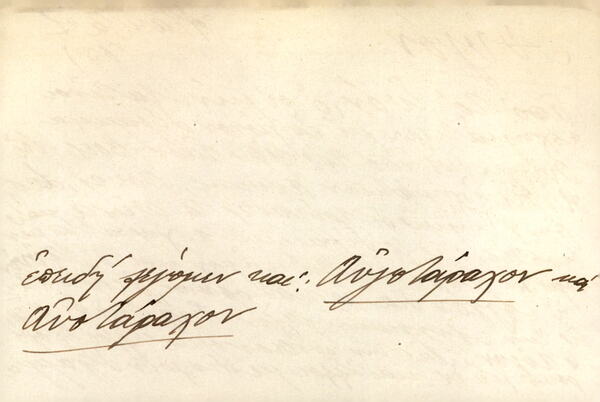 ἐπειδὴ λέγομεν καί: Αὐγοτάραχον κα
Αὐοτάραχον